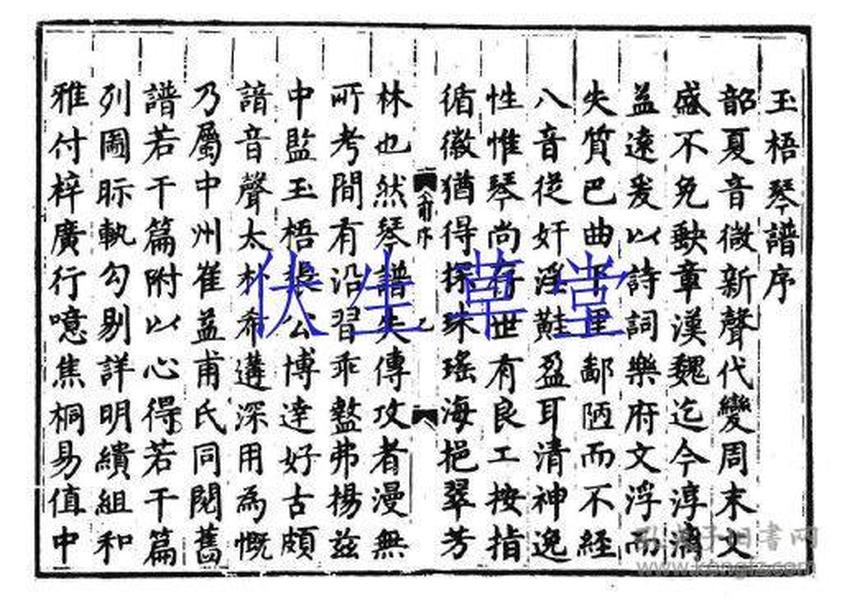 玉梧琴譜序
韶夏音微新聲代變周末文
盛不免缺章漢魏迄今淳漓
益遠爰以詩詞樂府文浮而
失質巴曲下里鄙陋而不經
八音從奸淫盈耳清神逸
性惟琴尚存世有良工按指
循徽猶得探珠瑤海挹翠芳
序
林也然琴譜失傳攻者漫無
所考間有沿習乖盩弗揚茲
中監玉梧張公博達好古頗
諳音聲太朴希遘深用為慨
乃屬中州崔益甫氏同閱舊
譜若干篇附以心得若干篇
列圖眎軌勾剔詳明繢組和
雅付梓廣行噫焦桐易值中
伏生草堂
孔夫子旧书网
www.kongfz.com